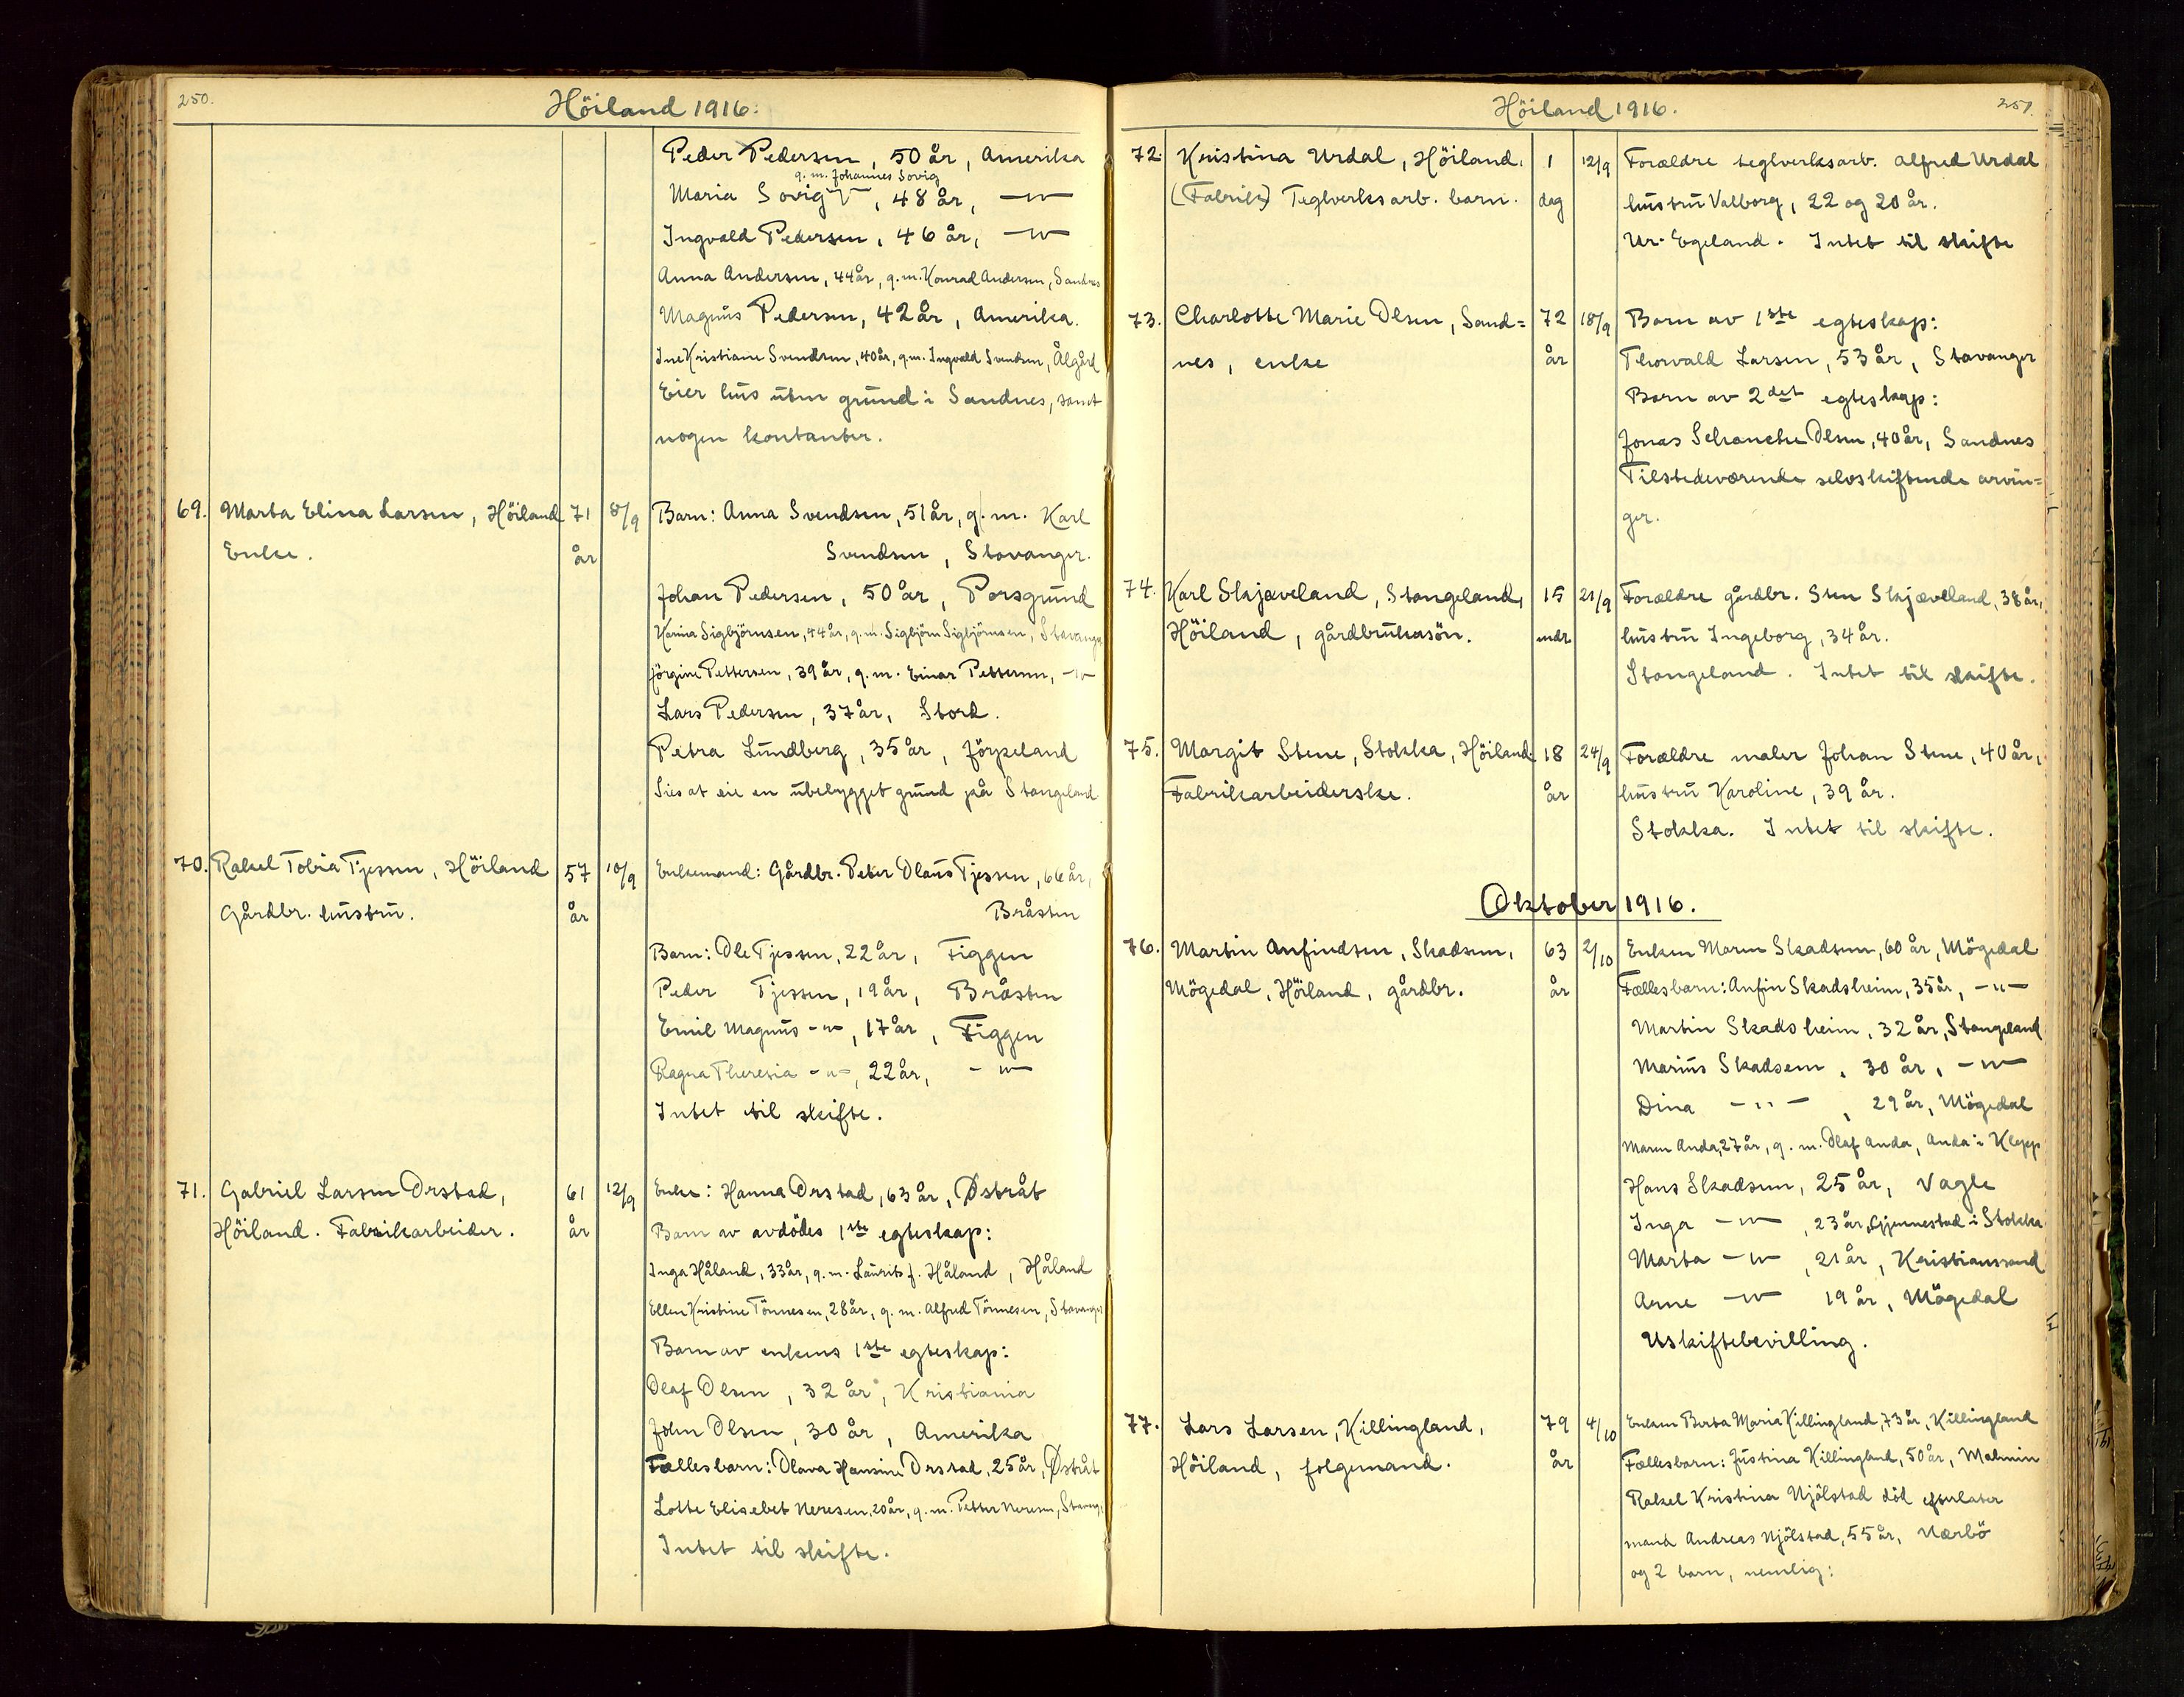 250.
Höiland 1916.
Peder Pedersen, 50 år, Amerika
g.m. Johannes Sovig
Maria Sovig, 48 år, —"—
Ingvald Pedersen, 46 år, —"—
Anna Andersen, 44 år, g.m. Konrad Andersen, Sandnes
Magnus Pedersen, 42 år, Amerika.
Ine Kristiane Svendsen, 40 år, g.m. Ingvald Svendsen, Ålgård
Eier hus uten grund i Sandnes, samt
nogen kontanter.
69. Marta Elina Larsen, Höiland 71 8/9 Barn: Anna Svendsen, 51 år, g.m. Karl
Enke. år Svendsen, Stavanger.
Johan Pedersen, 50 år, Porsgrund
Karina Sigbjörnsen, 44 år, g.m. Sigbjörn Sigbjörnsen, Stavanger
Jörgine Pettersen, 39 år, g.m. Einar Pettersen, —"—
Lars Pedersen, 37 år, Stord.
Petra Lundberg, 35 år, Jörpeland
Sies at eie en ubebygget grund på Stangeland
70. Rakel Tobia Tjessen, Höiland 57 10/9 Enkemand: Gårdbr. Peder Olaus Tjessen, 66 år,
Gårdbr. hustru. år Bråsten
Barn: Ole Tjessen, 22 år, Figgen
Peder Tjessen, 19 år, Bråsten
Emil Magnus —"—, 17 år, Figgen
Ragna Theresia —"—, 22 år, —"—
Intet til skifte.
71. Gabriel Larsen Orstad, 61 12/9 Enke: Hanna Orstad, 63 år, Østråt
Höiland. Fabrikarbeider. år Barn av avdödes 1ste egteskap:
Inga Håland, 33 år, g.m. Laurits J. Håland, Håland
Ellen Kristine Tönnesen, 28 år, g.m. Alfred Tönnesen, Stavanger
Barn av enkens 1ste egteskap:
Olaf Olsen, 32 år, Kristiania
John Olsen, 30 år, Amerika
Fællesbarn: Olava Hansine Orstad, 25 år, Østråt
Lotte Elisebet Neresen, 20 år, g.m. Petter Neresen, Stavang.
Intet til skifte.
Höiland 1916.
251.
72. Kristina Urdal, Höiland, 1 12/9 Forældre teglverksarb. Alfred Urdal
(Fabrik) Teglverksarb. barn. dag hustru Valborg, 22 og 20 år.
Ur. Egeland. Intet til skifte
73. Charlotte Marie Olsen, Sand= 72 18/9 Barn av 1ste egteskap:
nes, enke år Thorvald Larsen, 53 år, Stavanger
Barn av 2det egteskap:
Jonas Schanche Olsen, 40 år, Sandnes
Tilstedeværende selvskiftende arvin=
ger.
74. Karl Skjæveland, Stangeland, 15 21/9 Forældre gårdbr. Sten Skjæveland, 38 år,
Höiland, gårdbrukersön. mdr. hustru Ingeborg, 34 år.
Stangeland. Intet til skifte.
75. Margit Stene, Stokka, Höiland. 18 24/9 Forældre maler Johan Stene, 40 år,
Fabrikarbeiderske. år hustru Karoline, 39 år.
Stokka. Intet til skifte.
Oktober 1916.
76. Martin Anfindsen, Skadsem, 63 2/10 Enken Maren Skadsem, 60 år, Mögedal
Mögedal, Höiland, gårdbr. år Fællesbarn: Anfin Skadsheim, 35 år, —"—
Martin Skadsheim, 32 år, Stangeland
Marius Skadsem, 30 år, —"—
Dina —"—, 29 år, Mögedal
Maren Anda, 27 år, g.m. Olaf Anda, Anda i Klepp
Hans Skadsem, 25 år, Vagle
Inga —"—, 23 år, Gjennestad i Stokke
Marta —"—, 21 år, Kristianssand
Arne —"— 19 år, Mögedal
Uskiftebevilling.
77. Lars Larsen, Killingland, 79 4/10 Enken Berta Maria Killingland, 73 år, Killingland
Höiland, folgemand. år Fællesbarn: Justina Killingland, 50 år, Malmin
Rakel Kristina Njölstad död efterlater
mand Andreas Njölstad, 55 år, Nærbö
og 2 barn, nemlig: